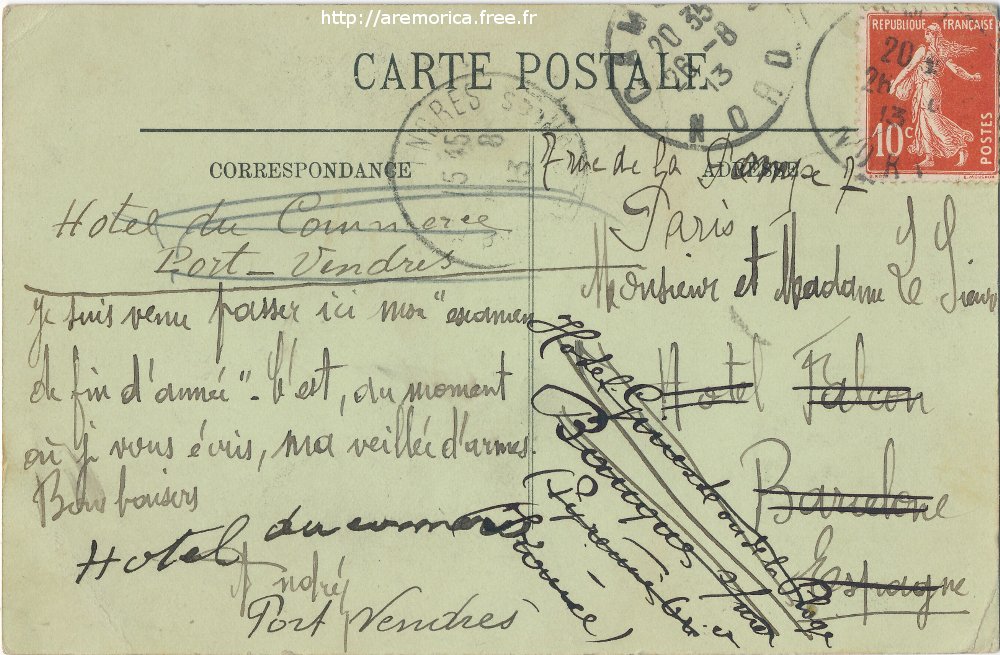 http://aremorica.free.fr
CARTE POSTALE
REPUBLIQUE FRANÇAISE
10c
POSTES
20 35
26 -8
13
NORD
15 45
8
13
CORRESPONDANCE
ADRESSE
Hotel du Commerce
Port-Vendres
Je suis venu passer ici mon "examen
de fin d'année". C'est, au moment
où je vous écris, ma veillée d'armes.
Bons baisers
André
Hotel du commerce
Port Vendres
7 rue de la Pompe 7
Paris
Monsieur et Madame Le Sieur
Hotel Falcon
Barcelone
Espagne
Hotel ou de la Plage
Banyuls s/mer
(Pyrénées-